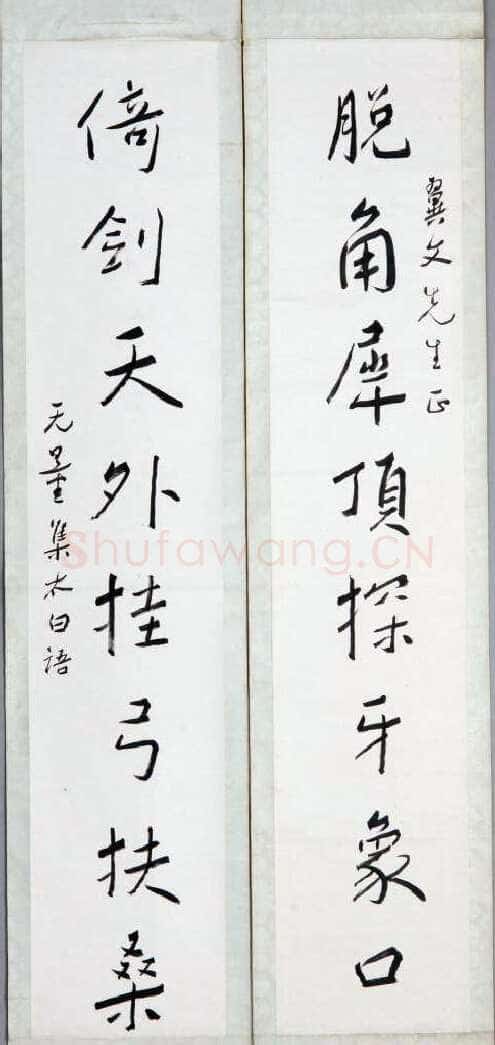 脱角犀頂探牙象口
翼文先生正
倚劍天外挂弓扶桑
无量集太白語
Shufawang.CN